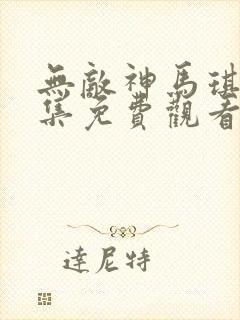 無敵神馬琪
集免費觀看
達尼特